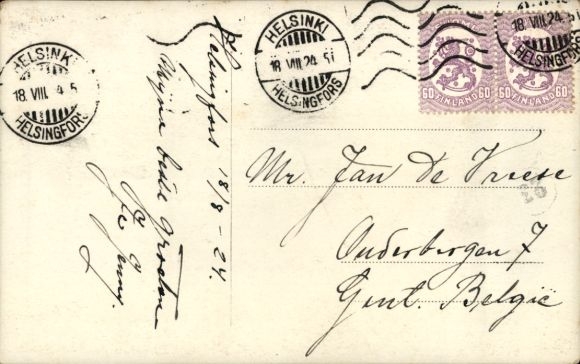 HELSINKI
18. VIII. 4 5
HELSINGFORS
HELSINKI
18. VIII. 24. 5
HELSINGFORS
18. VIII. 24
HELSINGFORS
60 FINLAND 60
60 FINLAND 60
Helsingfors 18/8 - 24.
Mijne beste Groeten
Jenny.
Mr. Jan De Vreese
Onderbergen 7
Gent. België